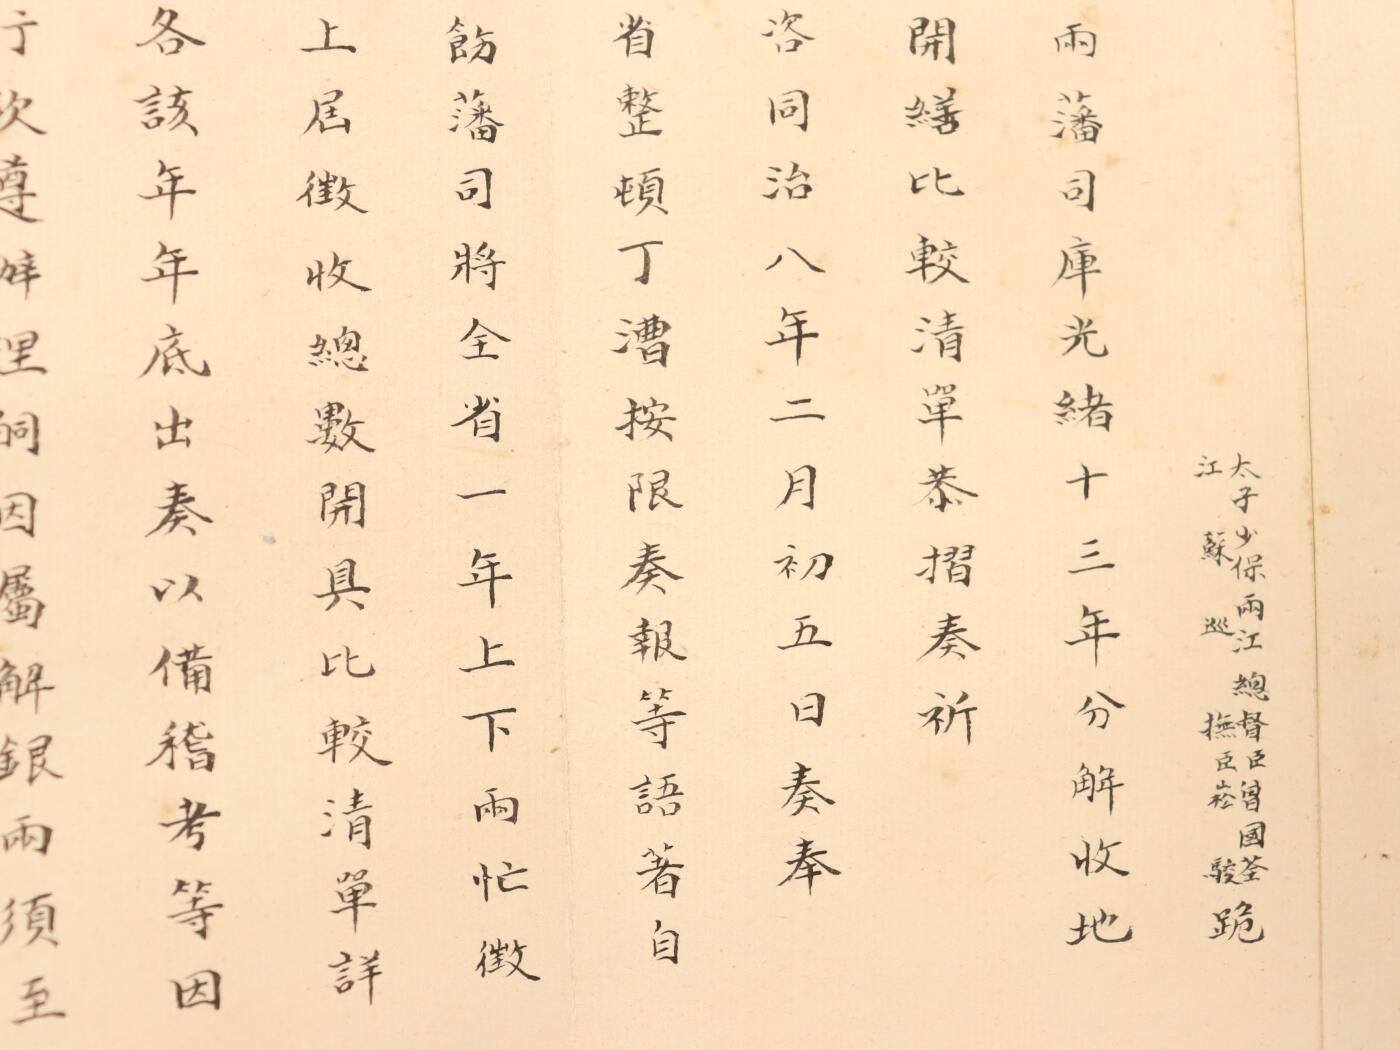 太子少保兩江總督臣曾國荃
江蘇巡撫臣崧駿
跪
兩藩司庫光緒十三年分解收地
開繕比較清單恭摺奏祈
咨同治八年二月初五日奏奉
省整頓丁漕按限奏報等語著自
飭藩司將全省一年上下兩忙徵
上屆徵收總數開具比較清單詳
各該年年底出奏以備稽考等因
行欬遵辦理嗣因屬解銀兩須至